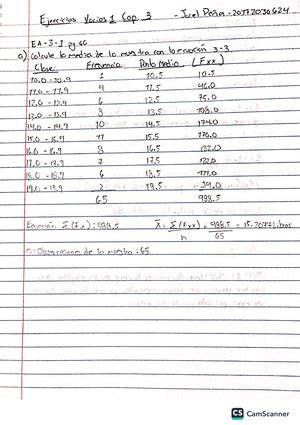 Ejercicios Varios 1 Cap. 3 - Joel Peña - 20172030624
EA-3-1 pg. 66
a) Calcule la media de la muestra con la ecuación 3-3.
Clase Frecuencia Punto Medio (Fxx)
10.0 - 10.9 1 10.5 10.5
11.0 - 11.9 4 11.5 46.0
12.0 - 12.9 6 12.5 75.0
13.0 - 13.9 8 13.5 108.0
14.0 - 14.9 12 14.5 174.0
15.0 - 15.9 11 15.5 170.0
16.0 - 16.9 8 16.5 132.0
17.0 - 17.9 7 17.5 122.0
18.0 - 18.9 6 18.5 111.0
19.0 - 19.9 2 19.5 39.0
65 988.5
Ecuación Σ(Fx): 988.5 X̄ = Σ(Fxx) = 988.5 = 15.2077 Litros
n 65
n: Observaciones de la muestra: 65
CS CamScanner